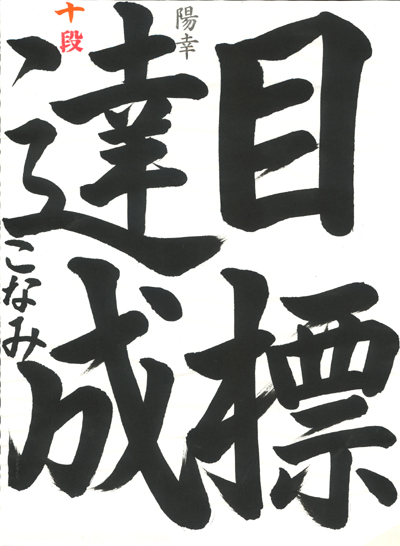 目標
達成
こなみ
十段
陽幸